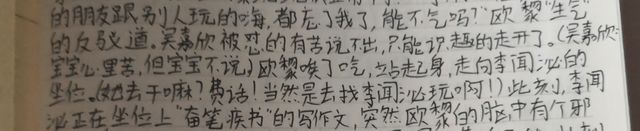 的朋友跟别人玩的嗨,都忘了我了,能不气吗?"欧黎"生气
的反驳道。吴嘉欣被怼的有苦说不出,只能识趣的走开了。(吴嘉欣:
宝宝心里苦,但宝宝不说。)欧黎唉了吃,站起身,走向李闻泌的
坐位。(她去干嘛?费话!当然是去找李闻泌玩啊!)此刻,李闻
泌正在坐位上"奋笔疾书"的写作文,突然,欧黎的脑中有个邪